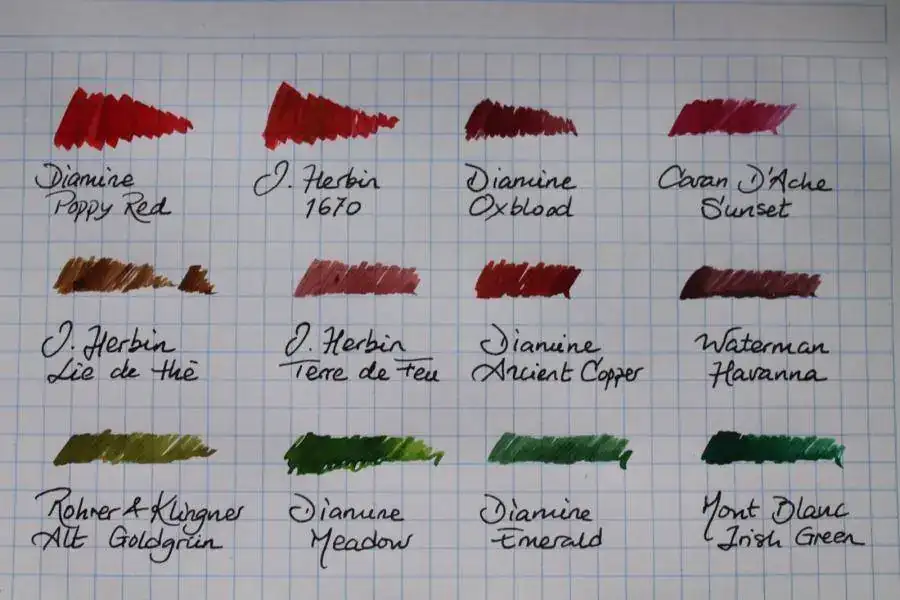 Diamine
Poppy Red
J. Herbin
1670
Diamine
Oxblood
Caran D'Ache
Sunset
J. Herbin
Lie de thé
J. Herbin
Terre de Feu
Diamine
Ancient Copper
Waterman
Havanna
Rohrer & Klingner
Alt Goldgrün
Diamine
Meadow
Diamine
Emerald
Mont Blanc
Irish Green